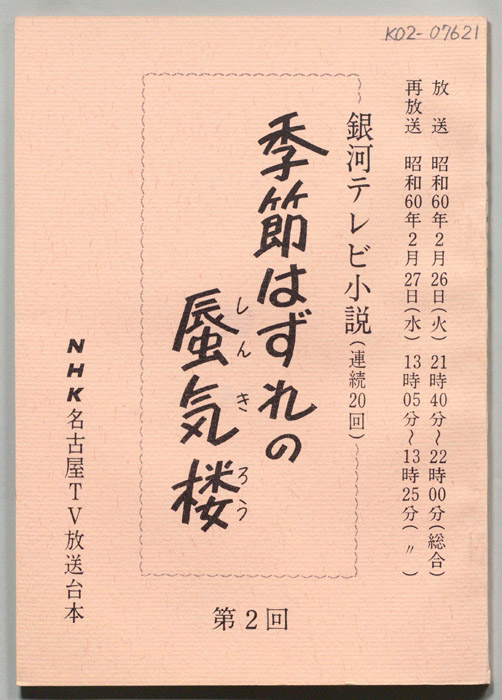 K02-07621
放 送 昭和60年2月26日(火) 21時40分〜22時00分(総合)
再放送 昭和60年2月27日(水) 13時05分〜13時25分( 〃 )
銀河テレビ小説(連続20回)
季節はずれの
蜃気楼
しんきろう
第2回
NHK名古屋TV放送台本